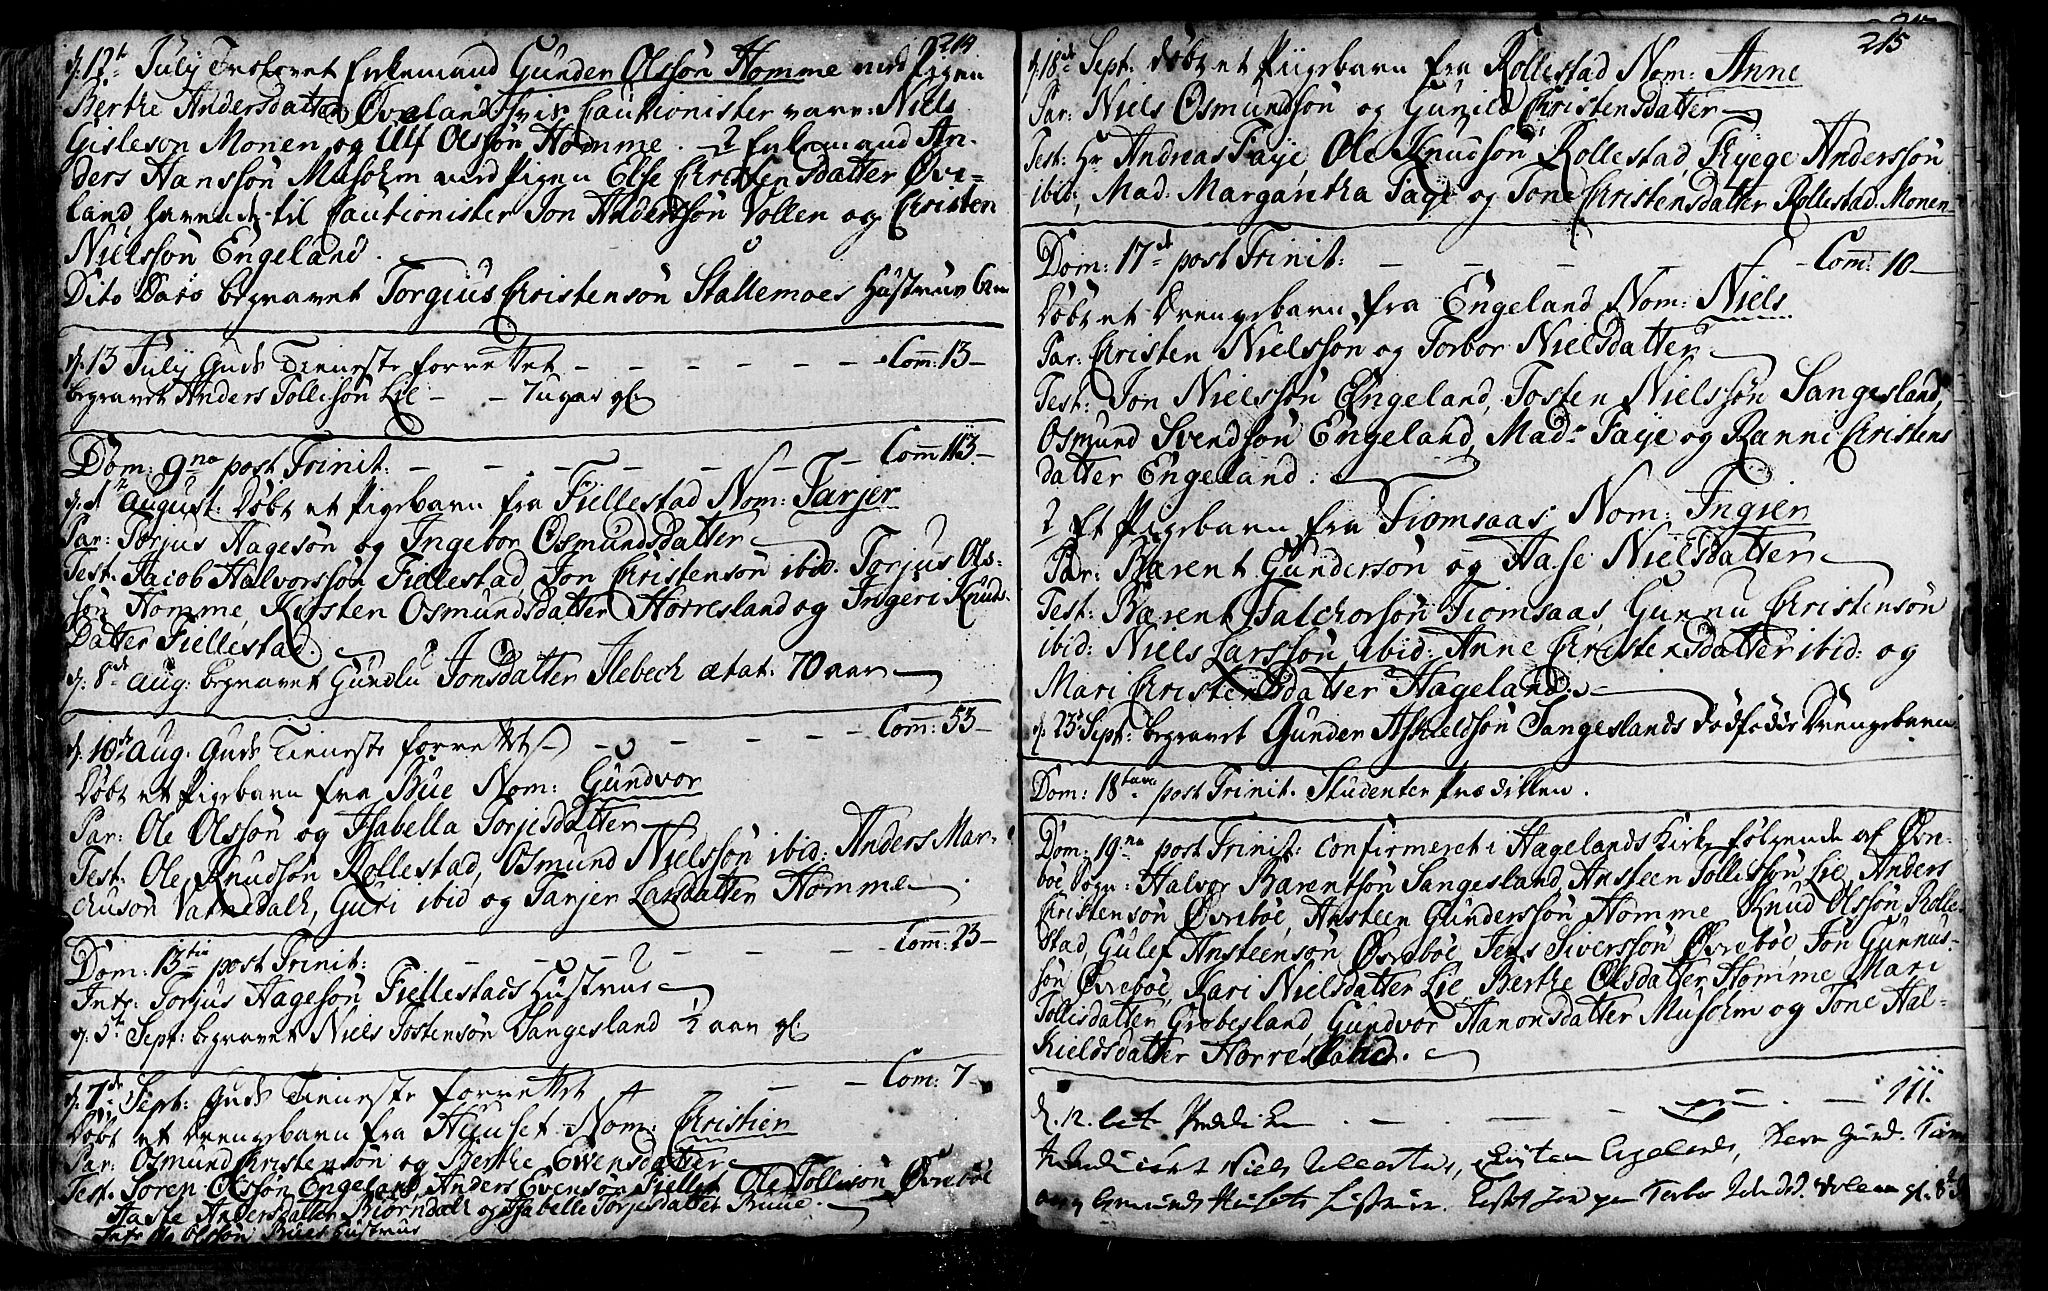 214
d: 12t July Trolovet Enkemand Gunder Olssön Homme med Pigen
Berthe Andersdatter Øveland hvis Cautionister vare: Niels
Gisleson Monen og Ulf Olssön Homme. 2 Enkemand An-
ders Hanssön Musolm med Pigen Else Christensdatter Øve-
land, havende til Cautionister Jon Anderssön Vollen og Christen
Nielssön Engeland.
Dito Dato begravet Torgius Christensön Stallemoes Hustrue
d: 13 July Guds Tieneste forrettet - - - - - - Com: 13 -
begravet Anders Tollissön Lie - - 7 uger gl.
Dom: 9na post Trinit: - - - - - - Com 113 -
August: Döbt et Pigebarn fra Fiellestad Nom: Tarjer
Par: Torjus Hagesön og Ingebor Osmundsdatter
Test. Jacob Halvorssön Fiellestad, Jon Christensön ibid. Torjus Ols-
sön Homme, Kirsten Osmundsdatter Horresland og Ingeri Knuds-
datter Fiellestad.
d: 8de Aug: begravet Gunlu Jonsdatter Ilebech ætat: 70 aar
d: 10de Aug. Guds Tieneste forrettet - - - - - Com: 53 -
Döbt et Pigebarn fra Bue Nom: Gundvor
Par: Ole Olssön og Isabella Torjesdatter
Test. Ole Knudsön Rollestad, Osmund Nielssön ibid: Anders Mar-
chusön Vatnedalk, Guri ibid og Tarjer Larsdatter Homme
Dom: 13tia post Trinit: - - - - - Com: 23 -
Intr: Torjus Hagesön Fiellestads Hustrue
d: 5t Sept: begravet Niels Tostensön Sangesland ½ aar gl.
d: 7de Sept: Guds Tieneste forrettet - - Com: 7 -
Döbt et Drengebarn fra Huuset Nom: Christen
Par: Osmund Christensön og Berthe Evensdatter
Test. Sören Olssön Engeland, Anders Evensön Fiellet, Ole Tollisön Øvreböe
Haste Andersdatter Biorndalk og Isabelle Torjesdatter Buue.
Intr: Ole Olssön Bues Hustrue
215
d: 18de Sept. döbt et Piigebarn fra Rollestad Nom: Anne
Par: Niels Osmundsön og Gunild Christensdatter
Test: Hr Andreas Faye, Ole Knudsön Rollestad, Kyege Anderssön
ibid, Mad. Margaretha Faye og Tone Christensdatter Rollestad. Monen
Dom: 17de post Trinit: - - - - - Com: 10 -
Döbt et Drengebarn fra Engeland Nom: Niels
Par: Christen Nielssön og Torbor Nielsdatter
Test: Jon Nielssön Engeland, Tosten Nielssön Sangesland,
Osmund Svendsön Engeland, Mad. Faye og Ranni Christens
datter Engeland.
2 Et Pigebarn fra Fiomsaas Nom: Ingier
Par: Barent Gundersön og Hase Nielsdatter
Test: Barent Falchorsön Fiomsaas, Gunnu Christensön
ibid: Niels Larssön ibid: Anne Christensdatter ibid: og
Mari Christensdatter Hageland.
d: 23d Sept: begravet Gunder Aschieldsön Sangeslands dödfödde Drengebarn
Dom: 18tava post Trinit. Studenter Prædikken.
Dom: 19na post Trinit: Confirmeret i Hagelands Kirke fölgende af Øvre-
böe Sogn: Halvor Barentsön Sangesland, Ansteen Tollissön Lie, Anders
Christensön Øvreböe, Ansteen Gunderssön Homme, Knud Olssön Rolle-
stad, Gulef Ansteensön Øvreböe, Jens Siverssön Øvreböe, Jon Gunnus-
sön Øvreböe, Kari Nielsdatter Lie, Berthe Olsdatter Homme, Mari
Tollisdatter Grobesland, Gundvor Hanonsdatter Musolm og Tone Hal-
kieldsdatter Horresland.
d. 12. - - - 111.
Niels Christen Engelands,
og Osmund Huusets Hustruer.